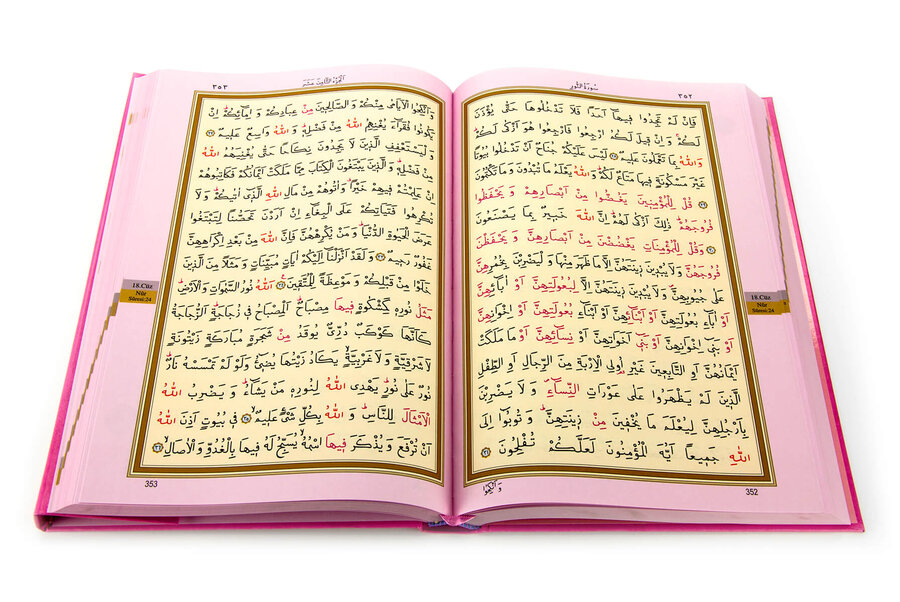 سُورَةُ النُّورِ ٣٥٢
فَاِنْ لَمْ تَجِدُوا فٖيهَٓا اَحَدًا فَلَا تَدْخُلُوهَا حَتّٰى يُؤْذَنَ
لَكُمْۚ وَاِنْ قٖيلَ لَكُمُ ارْجِعُوا فَارْجِعُوا هُوَ اَزْكٰى لَكُمْۜ
وَاللّٰهُ بِمَا تَعْمَلُونَ عَلٖيمٌ ﴿٢٨﴾ لَيْسَ عَلَيْكُمْ جُنَاحٌ اَنْ تَدْخُلُوا بُيُوتًا
غَيْرَ مَسْكُونَةٍ فٖيهَا مَتَاعٌ لَكُمْۜ وَاللّٰهُ يَعْلَمُ مَا تُبْدُونَ وَمَا تَكْتُمُونَ
﴿٢٩﴾ قُلْ لِلْمُؤْمِنٖينَ يَغُضُّوا مِنْ اَبْصَارِهِمْ وَيَحْفَظُوا
فُرُوجَهُمْۜ ذٰلِكَ اَزْكٰى لَهُمْۜ اِنَّ اللّٰهَ خَبٖيرٌ بِمَا يَصْنَعُونَ
﴿٣٠﴾ وَقُلْ لِلْمُؤْمِنَاتِ يَغْضُضْنَ مِنْ اَبْصَارِهِنَّ وَيَحْفَظْنَ
فُرُوجَهُنَّ وَلَا يُبْدٖينَ زٖينَتَهُنَّ اِلَّا مَا ظَهَرَ مِنْهَا وَلْيَضْرِبْنَ بِخُمُرِهِنَّ
عَلٰى جُيُوبِهِنَّۖ وَلَا يُبْدٖينَ زٖينَتَهُنَّ اِلَّا لِبُعُولَتِهِنَّ اَوْ اٰبَٓائِهِنَّ
اَوْ اٰبَٓاءِ بُعُولَتِهِنَّ اَوْ اَبْنَٓائِهِنَّ اَوْ اَبْنَٓاءِ بُعُولَتِهِنَّ اَوْ اِخْوَانِهِنَّ
اَوْ بَنٖٓي اِخْوَانِهِنَّ اَوْ بَنٖٓي اَخَوَاتِهِنَّ اَوْ نِسَٓائِهِنَّ اَوْ مَا مَلَكَتْ
اَيْمَانُهُنَّ اَوِ التَّابِعٖينَ غَيْرِ اُو۬لِي الْاِرْبَةِ مِنَ الرِّجَالِ اَوِ الطِّفْلِ
الَّذٖينَ لَمْ يَظْهَرُوا عَلٰى عَوْرَاتِ النِّسَٓاءِۖ وَلَا يَضْرِبْنَ
بِاَرْجُلِهِنَّ لِيُعْلَمَ مَا يُخْفٖينَ مِنْ زٖينَتِهِنَّۜ وَتُوبُٓوا اِلَى
اللّٰهِ جَمٖيعًا اَيُّهَ الْمُؤْمِنُونَ لَعَلَّكُمْ تُفْلِحُونَ ﴿٣١﴾
وَاَنْكِحُوا
352
18.Cüz
Nûr
Sûresi:24
اَلْجُزْءُ الثَّامِنَ عَشَرَ ٣٥٣
وَاَنْكِحُوا الْاَيَامٰى مِنْكُمْ وَالصَّالِحٖينَ مِنْ عِبَادِكُمْ وَاِمَٓائِكُمْۜ اِنْ
يَكُونُوا فُقَرَٓاءَ يُغْنِهِمُ اللّٰهُ مِنْ فَضْلِهٖۜ وَاللّٰهُ وَاسِعٌ عَلٖيمٌ ﴿٣٢﴾
وَلْيَسْتَعْفِفِ الَّذٖينَ لَا يَجِدُونَ نِكَاحًا حَتّٰى يُغْنِيَهُمُ اللّٰهُ
مِنْ فَضْلِهٖۜ وَالَّذٖينَ يَبْتَغُونَ الْكِتَابَ مِمَّا مَلَكَتْ اَيْمَانُكُمْ فَكَاتِبُوهُمْ
اِنْ عَلِمْتُمْ فٖيهِمْ خَيْرًاۗ وَاٰتُوهُمْ مِنْ مَالِ اللّٰهِ الَّذٖٓي اٰتٰيكُمْۜ وَلَا
تُكْرِهُوا فَتَيَاتِكُمْ عَلَى الْبِغَٓاءِ اِنْ اَرَدْنَ تَحَصُّنًا لِتَبْتَغُوا
عَرَضَ الْحَيٰوةِ الدُّنْيَاۜ وَمَنْ يُكْرِهْهُنَّ فَاِنَّ اللّٰهَ مِنْ بَعْدِ اِكْرَاهِهِنَّ
غَفُورٌ رَحٖيمٌ ﴿٣٣﴾ وَلَقَدْ اَنْزَلْنَٓا اِلَيْكُمْ اٰيَاتٍ مُبَيِّنَاتٍ وَمَثَلًا مِنَ الَّذٖينَ
خَلَوْا مِنْ قَبْلِكُمْ وَمَوْعِظَةً لِلْمُتَّقٖينَ ﴿٣٤﴾ اَللّٰهُ نُورُ السَّمٰوَاتِ وَالْاَرْضِۜ
مَثَلُ نُورِهٖ كَمِشْكٰوةٍ فٖيهَا مِصْبَاحٌۜ اَلْمِصْبَاحُ فٖي زُجَاجَةٍۜ اَلزُّجَاجَةُ
كَاَنَّهَا كَوْكَبٌ دُرِّيٌّ يُوقَدُ مِنْ شَجَرَةٍ مُبَارَكَةٍ زَيْتُونَةٍ
لَا شَرْقِيَّةٍ وَلَا غَرْبِيَّةٍۙ يَكَادُ زَيْتُهَا يُضٖٓيءُ وَلَوْ لَمْ تَمْسَسْهُ نَارٌۜ
نُورٌ عَلٰى نُورٍۜ يَهْدِي اللّٰهُ لِنُورِهٖ مَنْ يَشَٓاءُۜ وَيَضْرِبُ اللّٰهُ
الْاَمْثَالَ لِلنَّاسِۜ وَاللّٰهُ بِكُلِّ شَيْءٍ عَلٖيمٌۙ ﴿٣٥﴾ فٖي بُيُوتٍ اَذِنَ اللّٰهُ
اَنْ تُرْفَعَ وَيُذْكَرَ فٖيهَا اسْمُهُۙ يُسَبِّحُ لَهُ فٖيهَا بِالْغُدُوِّ وَالْاٰصَالِۙ ﴿٣٦﴾
353
18.Cüz
Nûr
Sûresi:24